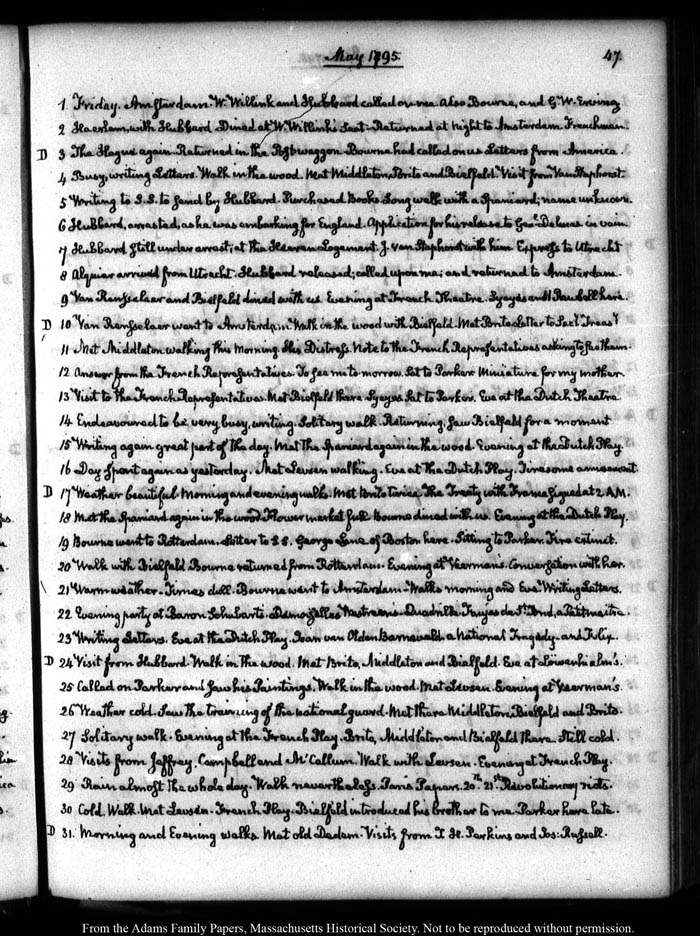 May 1795.
47.
1. Friday. Amsterdam. W. Willink and Hubbard called on me. Also Bourne, and G. W. Erving
2 Haerlem, with Hubbard Dined at W. Willink's Seat. Returned at night to Amsterdam. Frenchman.
D 3 The Hague again. Returned in the Postwaggon. Bourne had called on us Letters from America
4 Busy, writing Letters. Walk in the wood. Met Middleton, Brito and Bielfeld. Visit from Van Staphorst.
5 Writing to S.S. to send by Hubbard. Purchased Books Long walk with a Spaniard; name unknown.
6 Hubbard, arrested, as he was embarking for England. Application for his release to Genl. Dewinter in vain.
7 Hubbard still under arrest; at the Heeren Logement. J. van Staphorst with him Express to Utrecht
8 Alquier arrived from Utrecht. Hubbard released; called upon me; and returned to Amsterdam.
9 Van Rensselaer and Bielfeld dined with us. Evening at French Theatre. Syeyes and Rewbell here.
D 10 Van Rensselaer went to Amsterdam Walk in the wood with Bielfeld. Met Brito. Letter to Secy. Treasy.
11 Met Middleton walking this Morning. His Distress. Note to the French Representatives asking to see them.
12 Answer from the French Representatives. To see me to-morrow. Sat to Parker. Miniature for my mother.
13 Visit to the French Representatives. Met Bielfeld there. Syeyes Sat to Parker. Eve at the Dutch Theatre
14 Endeavoured to be very busy, writing. Solitary walk. Returning. Saw Bielfeld for a moment
15 Writing again great part of the day. Met the Spaniard again in the wood. Evening at the Dutch Play.
16 Day spent again as yesterday. Met Levsen walking. Eve at the Dutch Play. Tiresome amusement.
D 17 Weather beautiful Morning and evening walks. Met Brito twice. The Treaty with France signed at 2 A.M.
18 Met the Spaniard again in the wood. Flower market full Bourne dined with us. Evening at the Dutch Play.
19 Bourne went to Rotterdam. Letter to S.S. George Lane of Boston here. Sitting to Parker. Fire extinct.
20 Walk with Bielfeld. Bourne returned from Rotterdam. Evening at Veerman's. Conversation with her.
21 Warm weather. Times dull. Bourne went to Amsterdam. Walks morning and Eve. Writing Letters.
22 Evening party at Baron Schubart's. Demoiselles Quadrille. Faujas de St. Fond, a Petit maitre.
23 Writing Letters. Eve at the Dutch Play. Joan van Olden Barneveld. a National Tragedy and Felix.
D 24 Visit from Hubbard Walk in the wood. Met Brito, Middleton and Bielfeld. Eve at Löwenhielm's.
25 Called on Parker and saw his Paintings. Walk in the wood. Met Levsen. Evening at Veerman's.
26 Weather cold. Saw the training of the national guard. Met there Middleton, Bielfeld and Brito.
27 Solitary walk. Evening at the French Play. Brito, Middleton and Bielfeld there. Still cold.
28 Visits from Jeffrey, Campbell and McCallum Walk with Levsen. Evening at French Play.
29 Rain almost the whole day. Walk nevertheless. Paris Papers. 20th. 21st. Revolutionary riots.
30 Cold. Walk. Met Levsen. French Play. Bielfeld introduced his brother to me. Parker here late.
D 31. Morning and Evening walks. Met old Dedem. Visits from T. H. Perkins and Jos: Russell.
From the Adams Family Papers, Massachusetts Historical Society. Not to be reproduced without permission.